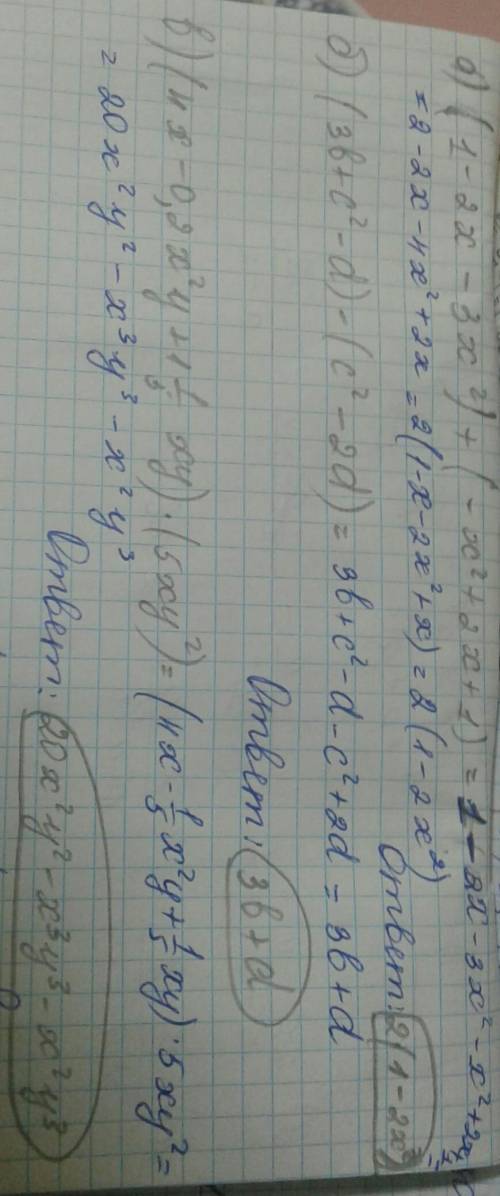 а) (1-2x-3x²)+(-x²+2x+1)=1-2x-3x²-x²+2x
=2-2x-4x²+2x=2(1-x-2x²+x)=2(1-2x²)
Ответ: 2(1-2x²)
б) (3b+c²-d)-(c²-2d)=3b+c²-d-c²+2d=3b+d
Ответ: 3b+d
в) (4x-0,2x²y+1 1/5 xy)·(5xy²)=(4x-1/5x²y+1/5xy)·5xy²=
=20x²y²-x³y³-x²y³
Ответ: 20x²y²-x³y³-x²y³